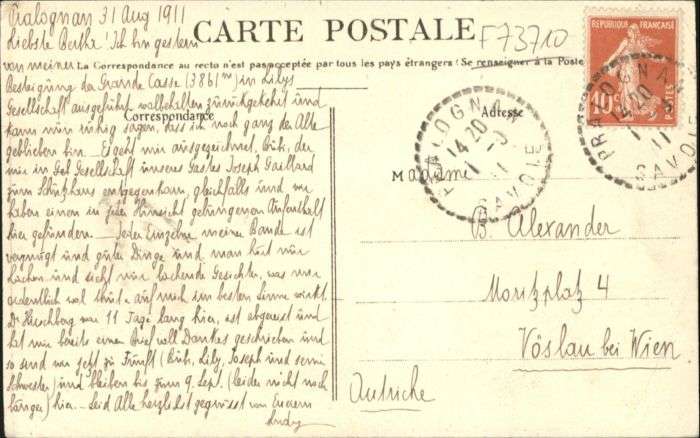 Pralognan 31 Aug 1911
CARTE POSTALE
F73710
RÉPUBLIQUE FRANÇAISE
10
POSTES
Liebste Berthe! Ich bin gestern
von meiner
La Correspondance au recto n'est pas acceptée par tous les pays étrangers (Se renseigner à la Poste
Besteigung der Grande Casse (3861 m) in Lilys
Gesellschaft ausgeführt wohlbehalten zurückgekehrt und
Correspondance
Adresse
kann nun ruhig sagen, dass ich noch ganz der Alte
geblieben bin. — Es geht mir ausgezeichnet, der
mir in der Gesellschaft unseres Gastes Joseph Gaillard
zum Schutzhaus entgegenkam, gleichfalls und wir
haben einen in jeder Hinsicht gelungenen Aufenthalt
hier gefunden. — Jeder Einzelne meiner Bande ist
vergnügt und guter Dinge und man hört nur
Lachen und sieht nur lachende Gesichter, was mir
ordentlich wohl thut auf mich im besten Sinne wirkt.
Dr Hirschberg war 11 Tage lang hier, ist abgereist und
hat mir bereits einen Brief voll Dankes geschrieben und
so sind wir jetzt zu Fünft (Lily, Joseph und seine
Schwester) und bleiben bis zum 9. Sept. (leider nicht noch
länger) hier. — Seid Alle herzlichst gegrüsst von Eurem
PRALOGNAN
14 20
1 - 9
11
SAVOIE
PRALOGNAN
14 20
1 - 9
11
SAVOIE
Madame
B. Alexander
Moritzplatz 4
Vöslau bei Wien
Autriche